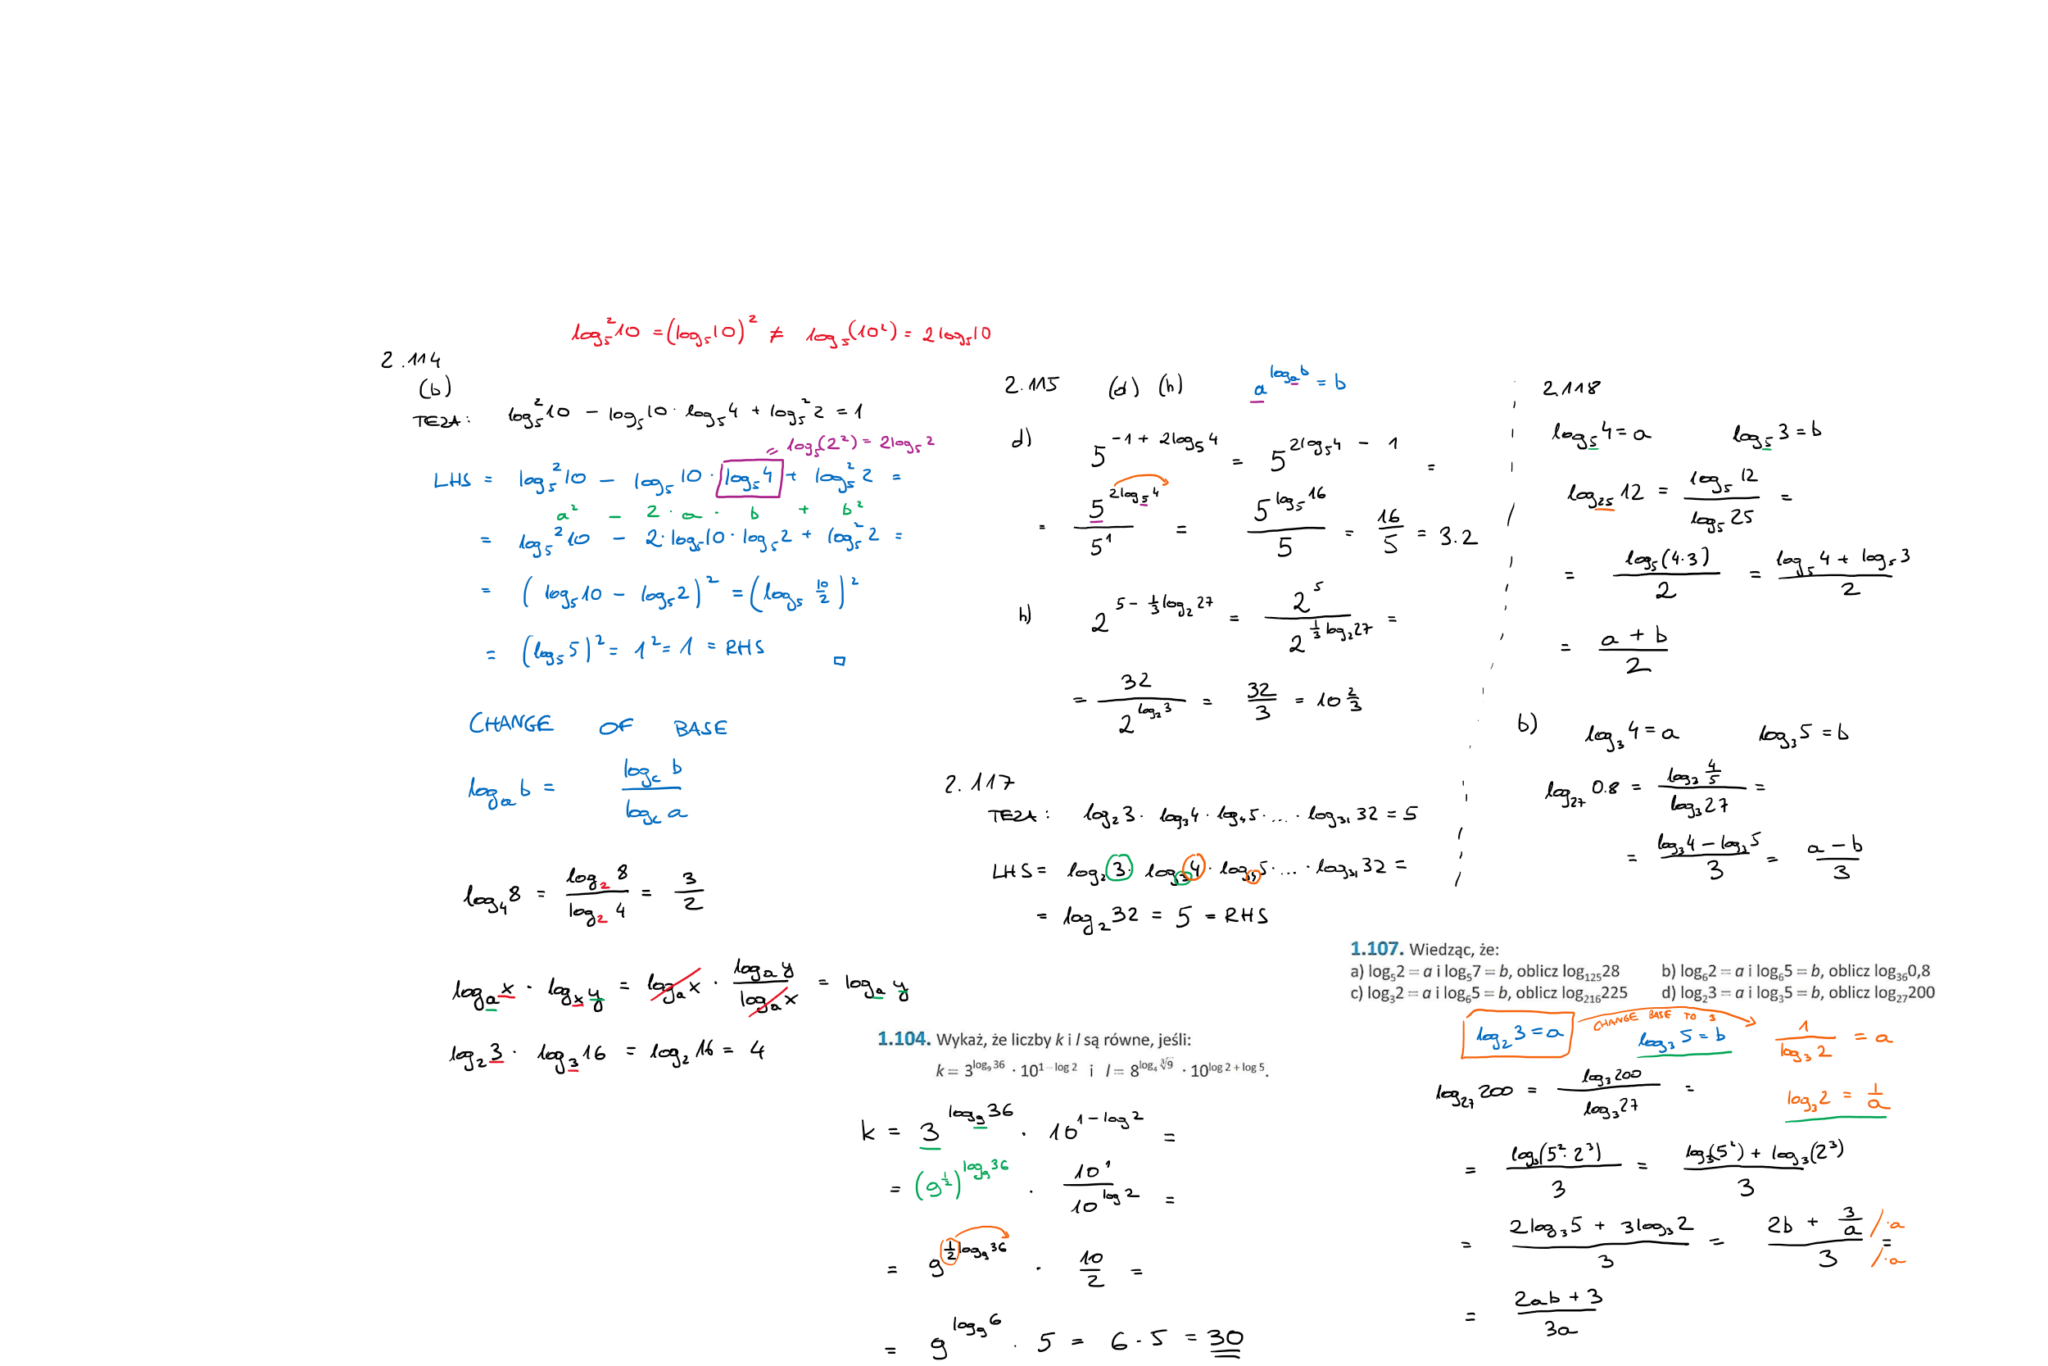 log₅²10 = (log₅10)² ≠ log₅(10²) = 2log₅10
2.114
(b)
TEZA: log₅²10 − log₅10 · log₅4 + log₅²2 = 1
= log₅(2²) = 2log₅2
LHS = log₅²10 − log₅10 · log₅4 + log₅²2 =
a² − 2 · a · b + b²
= log₅²10 − 2·log₅10 · log₅2 + log₅²2 =
= (log₅10 − log₅2)² = (log₅ 10/2)²
= (log₅5)² = 1² = 1 = RHS □
CHANGE OF BASE
logₐb = log_c b / log_c a
log₄8 = log₂8 / log₂4 = 3/2
logₐx · logₓy = logₐx · logₐy / logₐx = logₐy
log₂3 · log₃16 = log₂16 = 4
2.115 (d) (h) a^(logₐb) = b
d) 5^(−1 + 2log₅4) = 5^(2log₅4 − 1) =
= 5^(2log₅4) / 5¹ = 5^(log₅16) / 5 = 16/5 = 3.2
h) 2^(5 − 1/3 log₂27) = 2⁵ / 2^(1/3 log₂27) =
= 32 / 2^(log₂3) = 32/3 = 10 2/3
2.117
TEZA: log₂3 · log₃4 · log₄5 · ... · log₃₁32 = 5
LHS = log₂3 · log₃4 · log₄5 · ... · log₃₁32 =
= log₂32 = 5 = RHS
1.104. Wykaż, że liczby k i l są równe, jeśli:
k = 3^(log₉36) · 10^(1 − log 2) i l = 8^(log₄ ∛9) · 10^(log 2 + log 5).
k = 3^(log₉36) · 10^(1 − log 2) =
= (9^(1/2))^(log₉36) · 10¹ / 10^(log 2) =
= 9^(1/2 log₉36) · 10/2 =
= 9^(log₉6) · 5 = 6 · 5 = 30
2.118
log₅4 = a log₅3 = b
log₂₅12 = log₅12 / log₅25 =
= log₅(4·3) / 2 = (log₅4 + log₅3) / 2
= (a + b) / 2
b) log₃4 = a log₃5 = b
log₂₇0.8 = log₃ 4/5 / log₃27 =
= (log₃4 − log₃5) / 3 = (a − b) / 3
1.107. Wiedząc, że:
a) log₅2 = a i log₅7 = b, oblicz log₁₂₅28 b) log₆2 = a i log₆5 = b, oblicz log₃₆0,8
c) log₃2 = a i log₆5 = b, oblicz log₂₁₆225 d) log₂3 = a i log₃5 = b, oblicz log₂₇200
CHANGE BASE TO 3
log₂3 = a log₃5 = b 1 / log₃2 = a
log₂₇200 = log₃200 / log₃27 = log₃2 = 1/a
= log₃(5²·2³) / 3 = (log₃(5²) + log₃(2³)) / 3
= (2log₃5 + 3log₃2) / 3 = (2b + 3/a) / 3 /·a /·a =
= (2ab + 3) / 3a